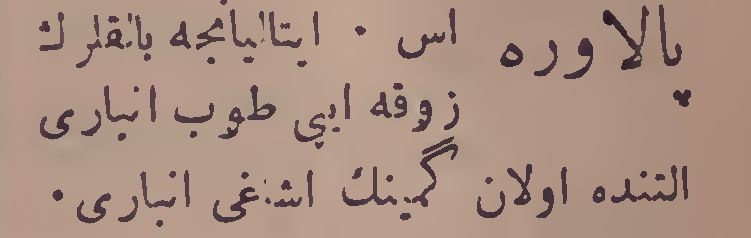 پالاوره اس · ایتالیانجه بالقلرك
زوقه ایپی طوپ انباری
التنده اولان گمینك اشاغی انباری ·